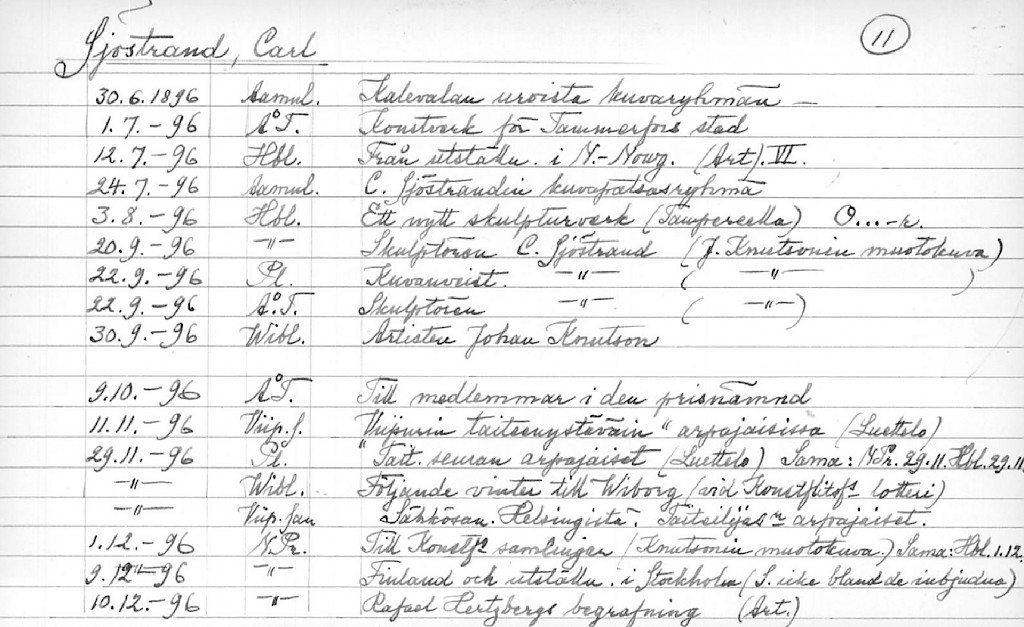 Sjöstrand, Carl 11
30.6.1896 Aamul. Kalevalan uroista kuvaryhmän —
1.7.-96 Å.T. Konstverk för Tammerfors stad
12.7.-96 Hbl. Från utställn. i N.-Nowg. (Art). VI.
24.7.-96 Aamul. C. Sjöstrandin kuvapatsasryhmä
3.8.-96 Hbl. Ett nytt skulpturverk (Tampereella) O...-r.
20.9.-96 -"- Skulptören C. Sjöstrand (J. Knutsonin muotokuva)
22.9.-96 Pl. Kuvanveist. -"- ( -"- )
22.9.-96 Å.T. Skulptören -"- ( -"- )
30.9.-96 Wibl. Artisten Johan Knutson
9.10.-96 Å.T. Till medlemmar i den prisnämnd
11.11.-96 Viip.s. Viipurin taiteenystäväin" arpajaisissa (Luettelo)
29.11.-96 Pl. "Tait. seuran arpajaiset (Luettelo) Sama: N.Pr. 29.11. Hbl. 29.11
-"- Wibl. Följande vinter till Wiborg (vid Konstflitsfs lotteri)
-"- Viip.san Sähkösan. Helsingistä. Taiteilijas:n arpajaiset.
1.12.-96 N.Pr. Till Konstfs samlingar (Knutsonin muotokuva.) Sama: Hbl. 1.12.
9.12-96 -"- Finland och utställn. i Stockholm (S. icke bland de inbjudna)
10.12.-96 -"- Rafael Hertzbergs begrafning (Art.)